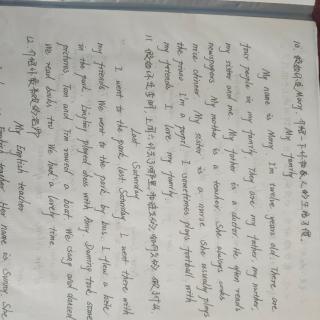 10. 假如你是Mary,介绍一下你和家人的生活习惯。
My family
My name is Mary. I'm twelve years old. There are
four people in my family. They are my father, my mother,
my sister and me. My father is a doctor. He often reads
newspapers. My mother is a teacher. She always cooks
nice dinner. My sister is a nurse. She usually plays
the piano. I'm a pupil. I sometimes plays football with
my friends. I love my family.
11. 假如你是李明,
Last Saturday
I went to the park last Saturday. I went there with
my friends. We went to the park by bus. I flew a kite
in the park. Lingling played chess with Amy. Daming took some
pictures. Tom and Tim rowed a boat. We sang and danced.
We read books, too. We had a lovely time.
12. 介绍你最
My English teacher
English teacher. Her name is Sunny. She